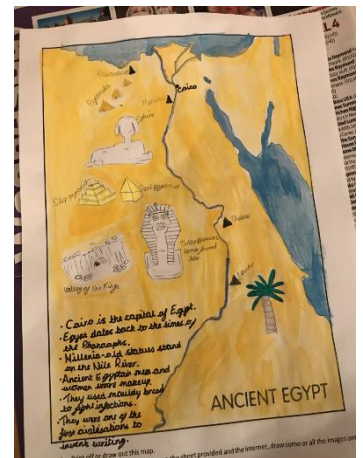 Alexandria
Pyramids
Cairo
Memphis
Sphinx
Step Pyramid
Thebes
Tutankhamuns
tomb found
here
Valley of the Kings
• Cairo is the capital of Egypt.
• Egypt dates back to the times of
the Pharaohs.
• Millenia-old statues stand
on the Nile River.
• Ancient Egyptain men and
women wore makeup.
• They used mouldy bread
to fight infections.
• They were one of the
first civilisations to
invent writing.
ANCIENT EGYPT
off or draw out this map.
the sheet provided and the internet, draw some or all the images on